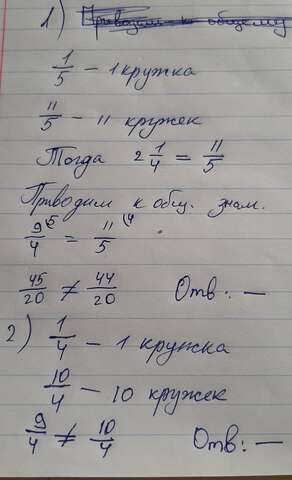 1) Приводим к общему
1/5 – 1 кружка
11/5 – 11 кружек
Тогда 2 1/4 = 11/5
Приводим к общ. знам.
9/4 (5 = 11/5 (4
45/20 ≠ 44/20 Отв: —
2) 1/4 – 1 кружка
10/4 – 10 кружек
9/4 ≠ 10/4 Отв: —